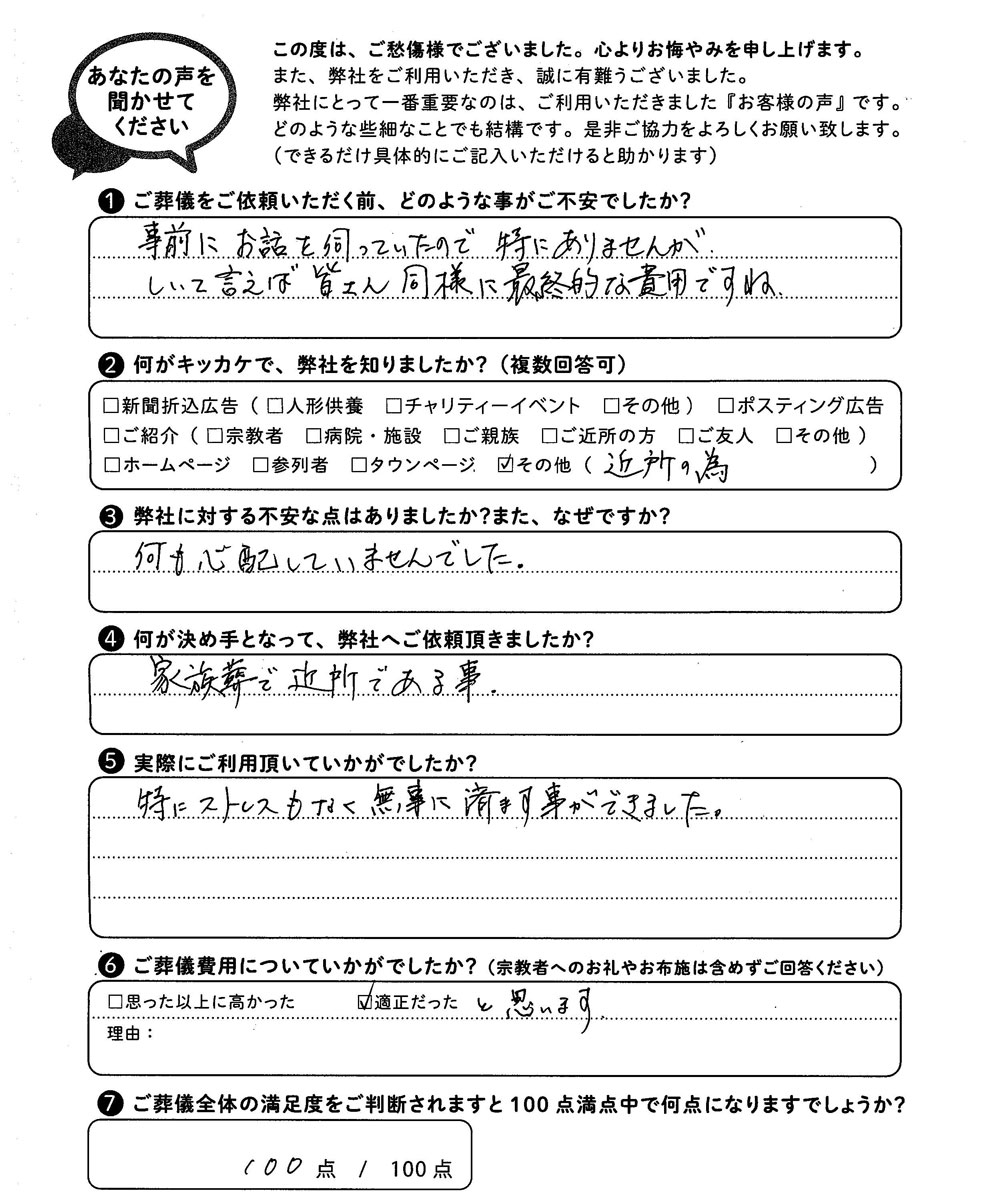 あなたの声を
聞かせて
ください
この度は、ご愁傷様でございました。心よりお悔やみを申し上げます。
また、弊社をご利用いただき、誠に有難うございました。
弊社にとって一番重要なのは、ご利用いただきました『お客様の声』です。
どのような些細なことでも結構です。是非ご協力をよろしくお願い致します。
（できるだけ具体的にご記入いただけると助かります）
❶ ご葬儀をご依頼いただく前、どのような事がご不安でしたか？
事前にお話を伺っていたので特にありませんが、
しいて言えば皆さん同様に最終的な費用ですね。
❷ 何がキッカケで、弊社を知りましたか？（複数回答可）
□新聞折込広告（□人形供養 □チャリティーイベント □その他） □ポスティング広告
□ご紹介（□宗教者 □病院・施設 □ご親族 □ご近所の方 □ご友人 □その他）
□ホームページ □参列者 □タウンページ ☑その他（近所の為）
❸ 弊社に対する不安な点はありましたか？また、なぜですか？
何も心配していませんでした。
❹ 何が決め手となって、弊社へご依頼頂きましたか？
家族葬で近所である事。
❺ 実際にご利用頂いていかがでしたか？
特にストレスもなく無事に済ます事ができました。
❻ ご葬儀費用についていかがでしたか？（宗教者へのお礼やお布施は含めずご回答ください）
□思った以上に高かった ☑適正だった と思います。
理由：
❼ ご葬儀全体の満足度をご判断されますと100点満点中で何点になりますでしょうか？
100点 / 100点